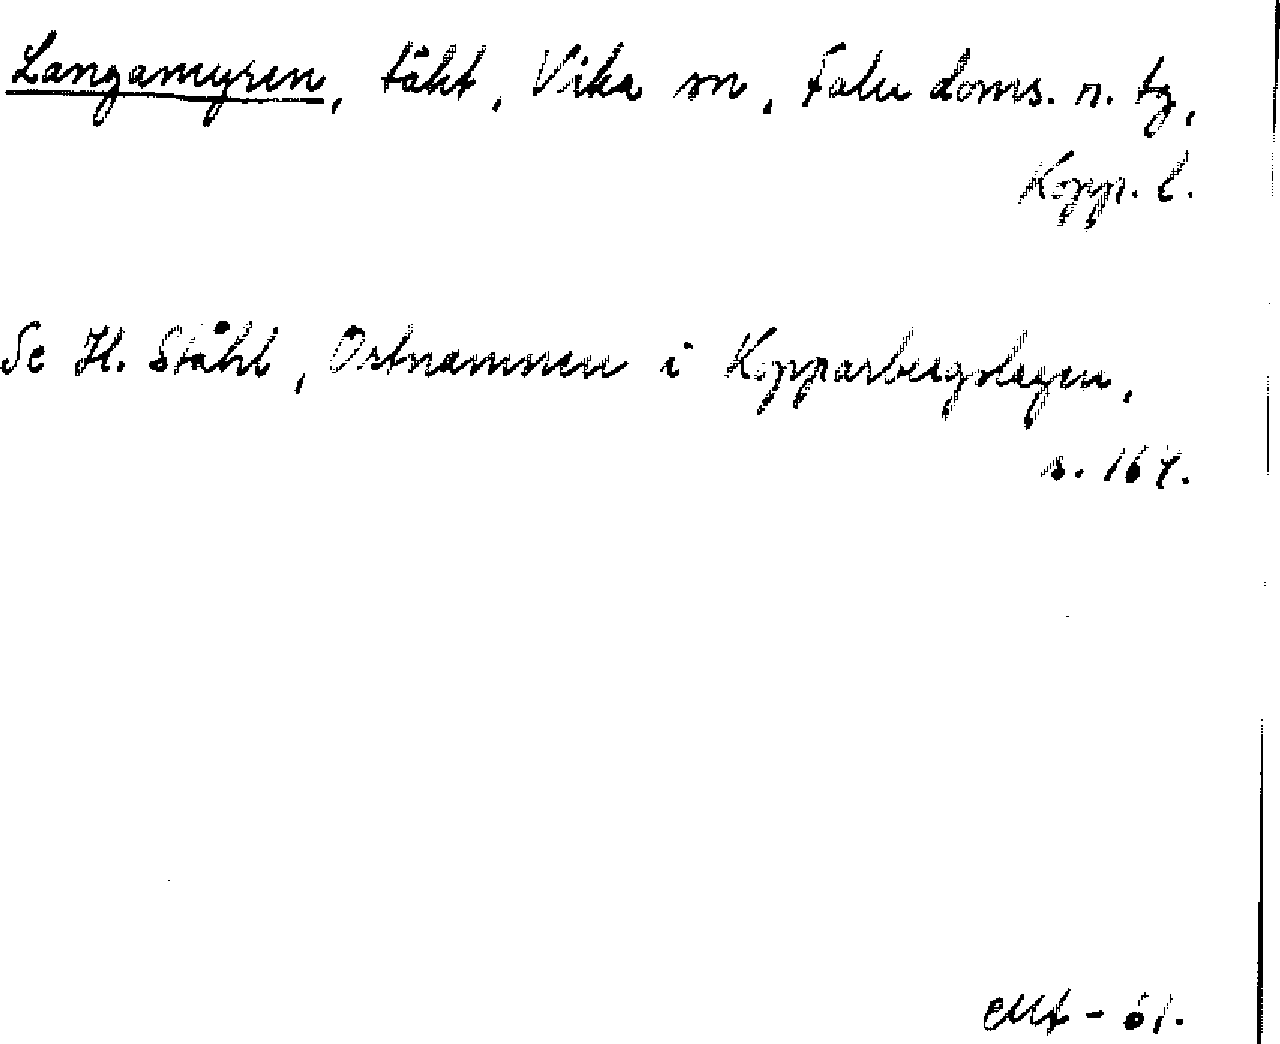 Langamyren, täkt, Vika sn, Falu doms. n. tg,
Kopp. l.
Se H. Ståhl, Ortnamnen i Kopparbergslagen,
s. 167.
- 61.